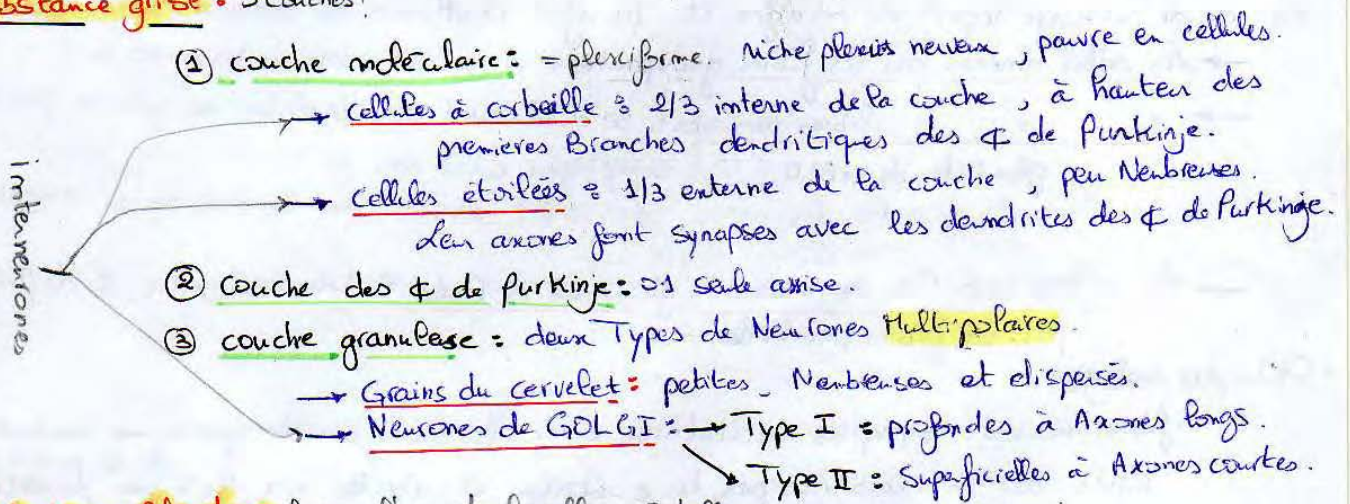 substance grise : 3 couches.
① couche moléculaire : = plexiforme. riche plexus nerveux, pauvre en cellules.
→ cellules à corbeille : 2/3 interne de la couche, à hauteur des
premieres Branches dendritiques des ¢ de Purkinje.
→ cellules étoilées : 1/3 externe de la couche, peu Nenbreuses.
Leur axones font synapses avec les dendrites des ¢ de Purkinje.
interneurones
② couche des ¢ de Purkinje : 01 seule assise.
③ couche granuleuse : deux Types de Neurones Multipolaires.
→ Grains du cervelet : petites, Nenbreuses et dispersés.
→ Neurones de GOLGI : → Type I : profondes à Axones longs.
→ Type II : Superficielles à Axones courtes.